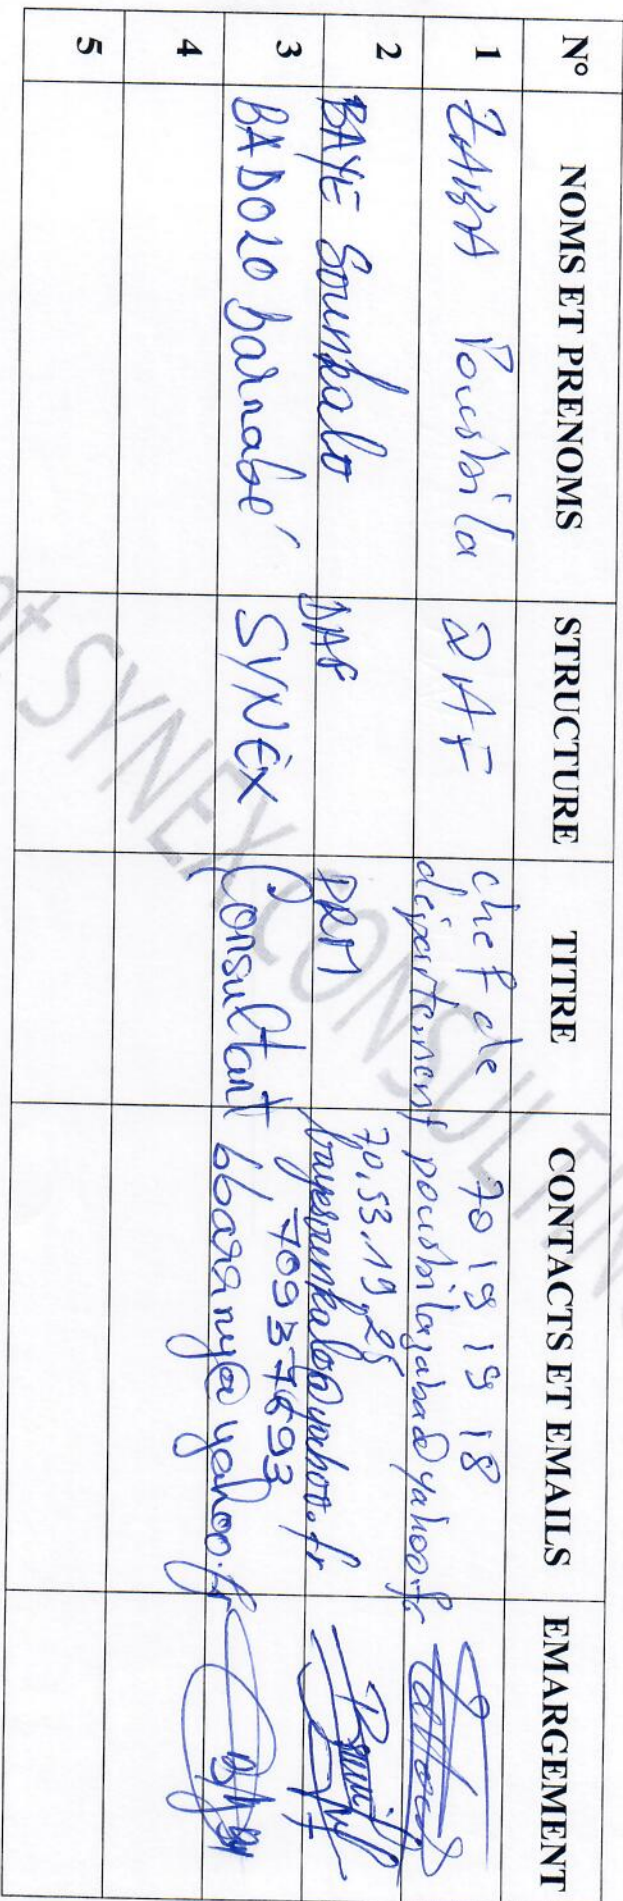 N° NOMS ET PRENOMS STRUCTURE TITRE CONTACTS ET EMAILS EMARGEMENT
1 ZABA Pousbila DAF chef de département 70 19 19 18
pousbilazaba@yahoo.fr
2 BAYE Sounkalo DAF PRM 70.53.19.25
bayesounkalo@yahoo.fr
3 BADOLO Barnabé SYNEX Consultant 70937693
bbarany@yahoo.fr
4
5
SYNEX CONSULTIN